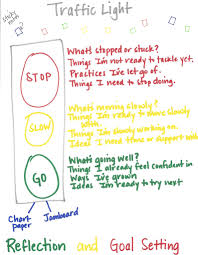 Traffic Light
sticky
notes
STOP
What's stopped or stuck?
Things I'm not ready to tackle yet.
Practices I've let go of.
Things I need to stop doing.
SLOW
What's moving slowly?
Things I'm ready to move slowly
with.
Things I'm slowly working on
Ideas I need time or support with
GO
What's going well?
Things I already feel confident in
Ways I've grown
Ideas I'm ready to try next
Chart
paper
Jamboard
Reflection and Goal Setting